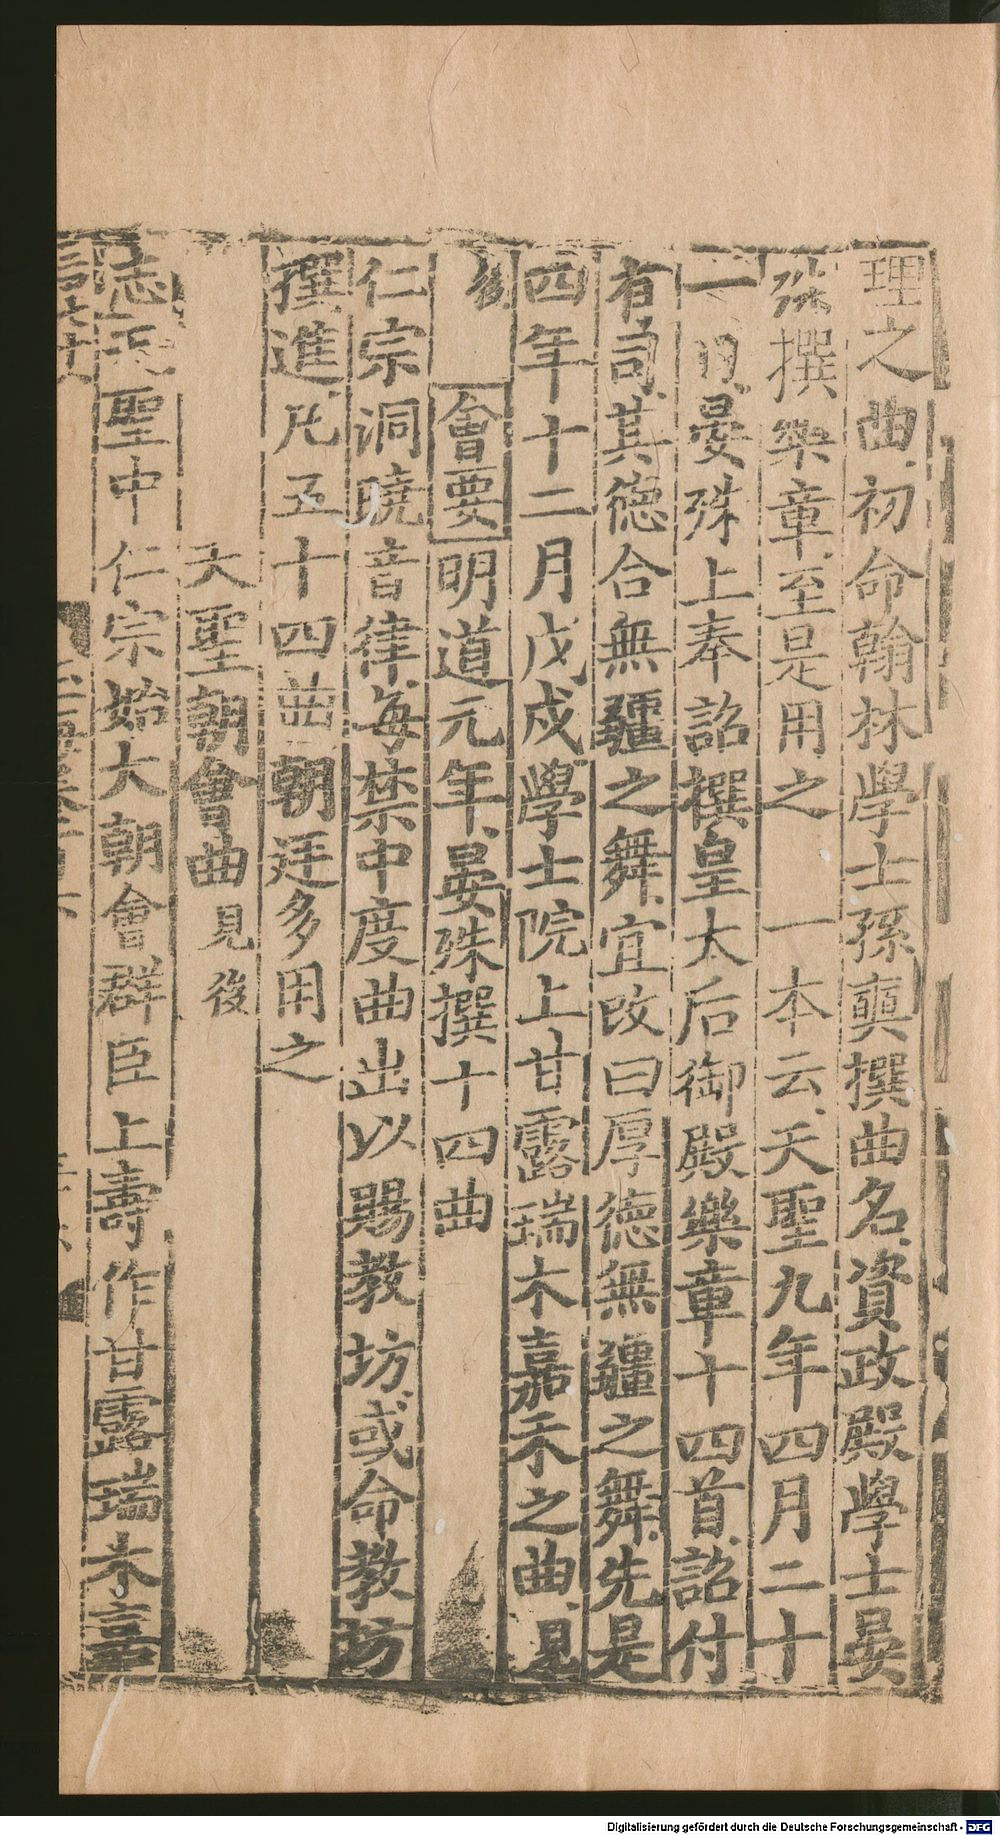 理之曲初命翰林學士孫奭撰曲名資政殿學士晏
殊撰樂章至是用之　一本云天聖九年四月二十
一日晏殊上奉詔撰皇太后御殿樂章十四首詔付
有司其德合無疆之舞宜改曰厚德無疆之舞先是
四年十二月戊戌學士院上甘露瑞木嘉禾之曲見
後　會要明道元年晏殊撰十四曲
仁宗洞曉音律每禁中度曲出以賜教坊或命教坊
撰進凡五十四曲朝廷多用之
天聖朝會曲見後
志天聖中　仁宗始大朝會群臣上壽作甘露瑞木嘉
Digitalisierung gefördert durch die Deutsche Forschungsgemeinschaft - DFG